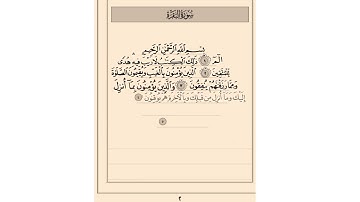 سُورَةُ البَقَرَةِ
بِسْمِ اللَّهِ الرَّحْمَٰنِ الرَّحِيمِ
الٓمٓ ١ ذَٰلِكَ الْكِتَٰبُ لَا رَيْبَ فِيهِ هُدًى
لِّلْمُتَّقِينَ ٢ الَّذِينَ يُؤْمِنُونَ بِالْغَيْبِ وَيُقِيمُونَ الصَّلَوٰةَ
وَمِمَّا رَزَقْنَٰهُمْ يُنفِقُونَ ٣ وَالَّذِينَ يُؤْمِنُونَ بِمَا أُنزِلَ
إِلَيْكَ وَمَا أُنزِلَ مِن قَبْلِكَ وَبِالْآخِرَةِ هُمْ يُوقِنُونَ ٤
٥
٢